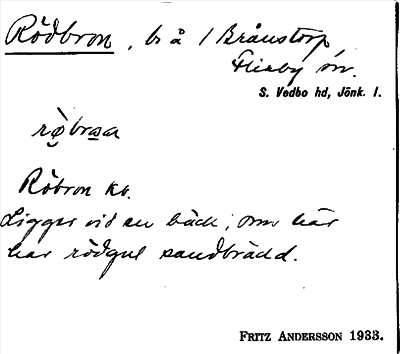 Rödbron, br å / Brånstorp
Flisby sn.
S. Vedbo hd, Jönk. l.
Röbron kb.
Ligger vid en bäck, som här
har rödgul sandbrädd.
FRITZ ANDERSSON 1933.